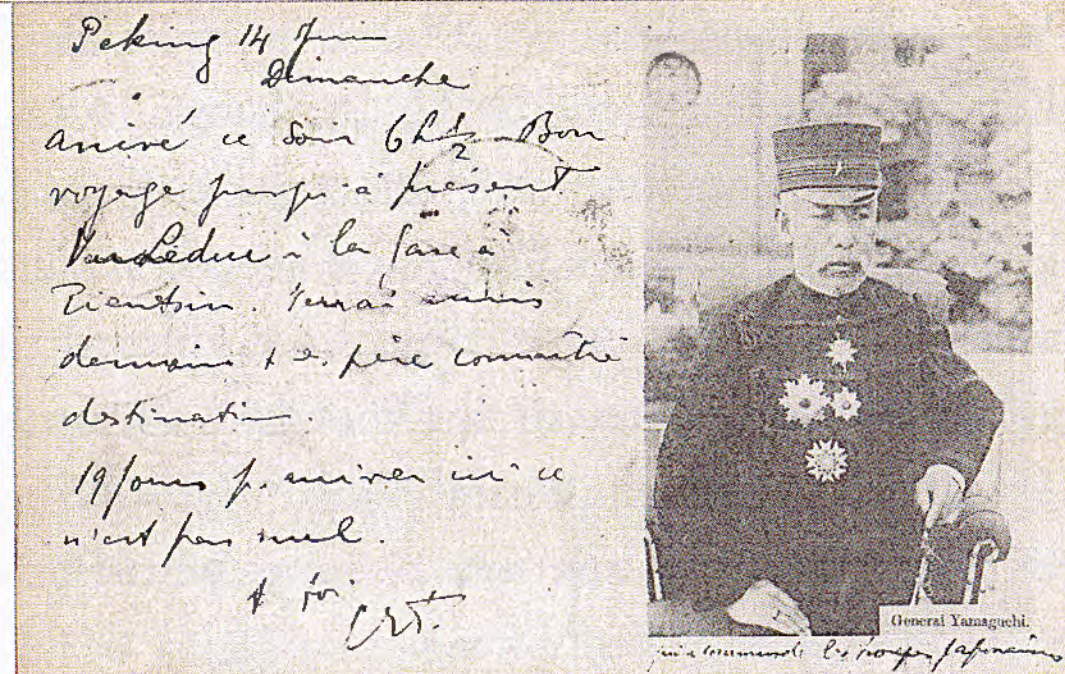 Peking 14 Juin
Dimanche
arrivé ce soir 6h ½ Bon
voyage jusqu'à présent
Vu Leduc à la gare à
Tientsin. Verrai
demain + espère connaître
destination.
19 jours p. arriver ici ce
n'est pas mal.
à toi
General Yamaguchi.
qui a commandé les troupes japonaises